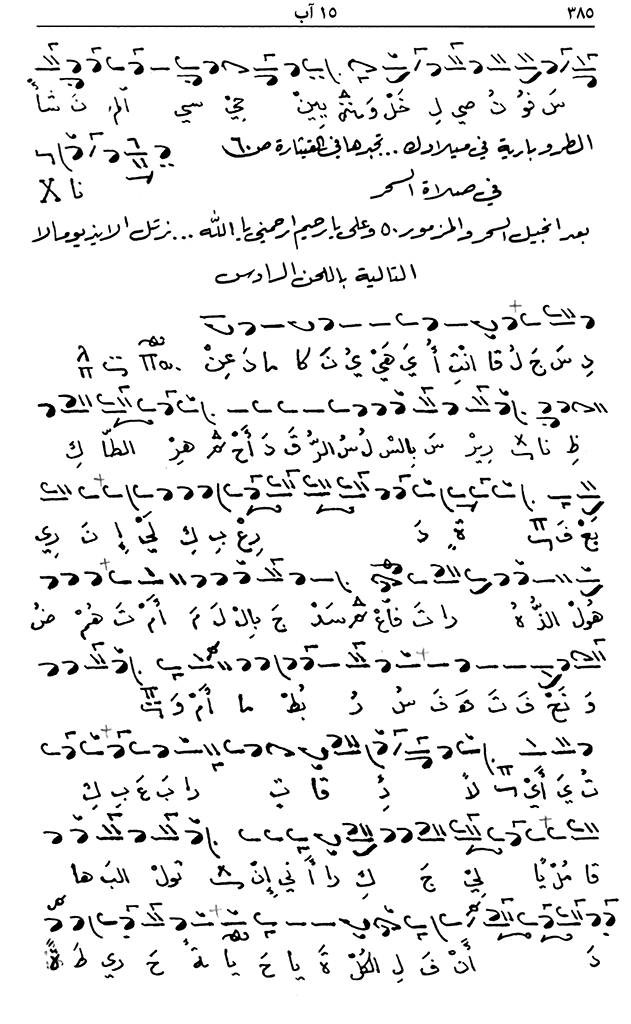 ٣٨٥ ١٥ آب
سَ نَوْ نُ صي لِ خَلْ وَ يِينْ حِيْ سي أَلمْ نَ شأْ
الطروبارية في ميلادك ... تجدها في القيثارة ص ٦٠
نا
في صلاة السحر
بعد انجيل السحر والمزمور ٥٠ وعلى يا رحيم ارحمني يا الله ... نرتل الايذيومالا
التالية باللحن السادس
دِ سَ جَ لُ قا انْتِ أُ يَ هَيْ يُ نَ كا ما دَ عِنْ
ظِ نا دِيرْ سَ بِالسْ لُ سُ الرُّ قَ دَ أَحْ هِرْ الطّا كِ
بَعْ فَ ةٍ دَ رِعْ بِ كِ لَيْ إِ نَ ري
هُولْ الذُّ ةُ را تَ فاعْ سَدْ جَ بِالْ لَ مَ أَمْ تَ هُمْ ضُ
وَ نَحْ فَ تَ هَ فَ سُ رُ بُطْ ما أَمْ وَ
تُ يَ أَيْ لاً ئِ قا تِ را بَ عَ بِ كِ
قا مُزْ يا لي جَ كِ را أَ ني إِنْ تولْ البَ ها
دَ أَنْ فَ لِ الكُلْ ةَ يا حَ يا ةُ حَ ري طَ ةً